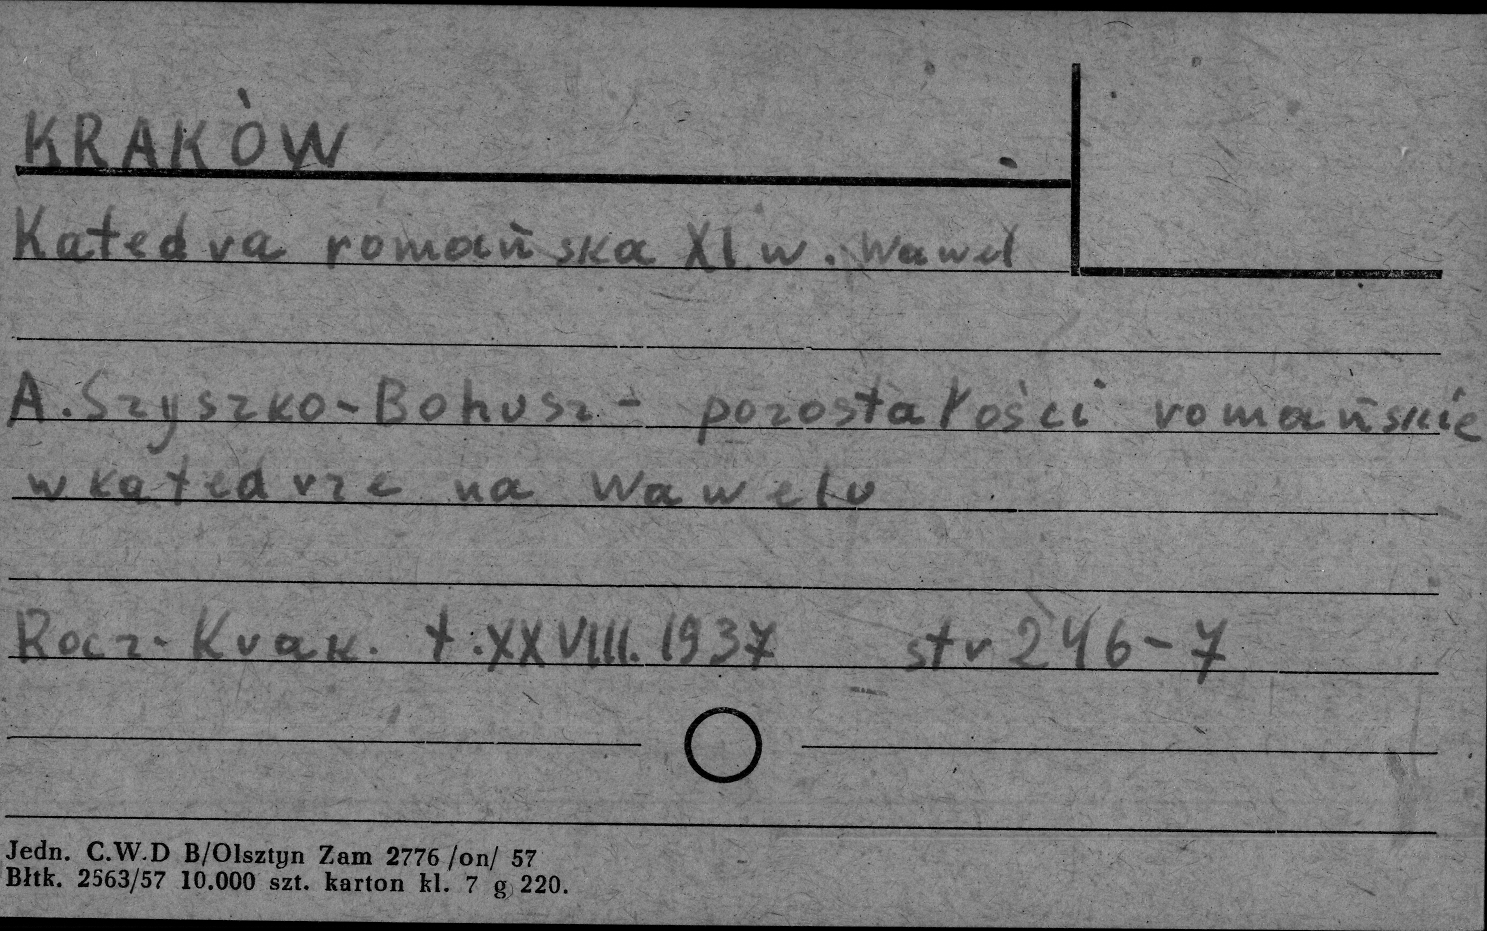 KRAKÓW
Katedra romańska XI w. Wawel
A. Szyszko-Bohusz - pozostałości romańskie
w katedrze na Wawelu
Rocz. Krak. t. XXVIII. 1937 str 246-7
Jedn. C.W.D B/Olsztyn Zam 2776 /on/ 57
Błtk. 2563/57 10.000 szt. karton kl. 7 g 220.